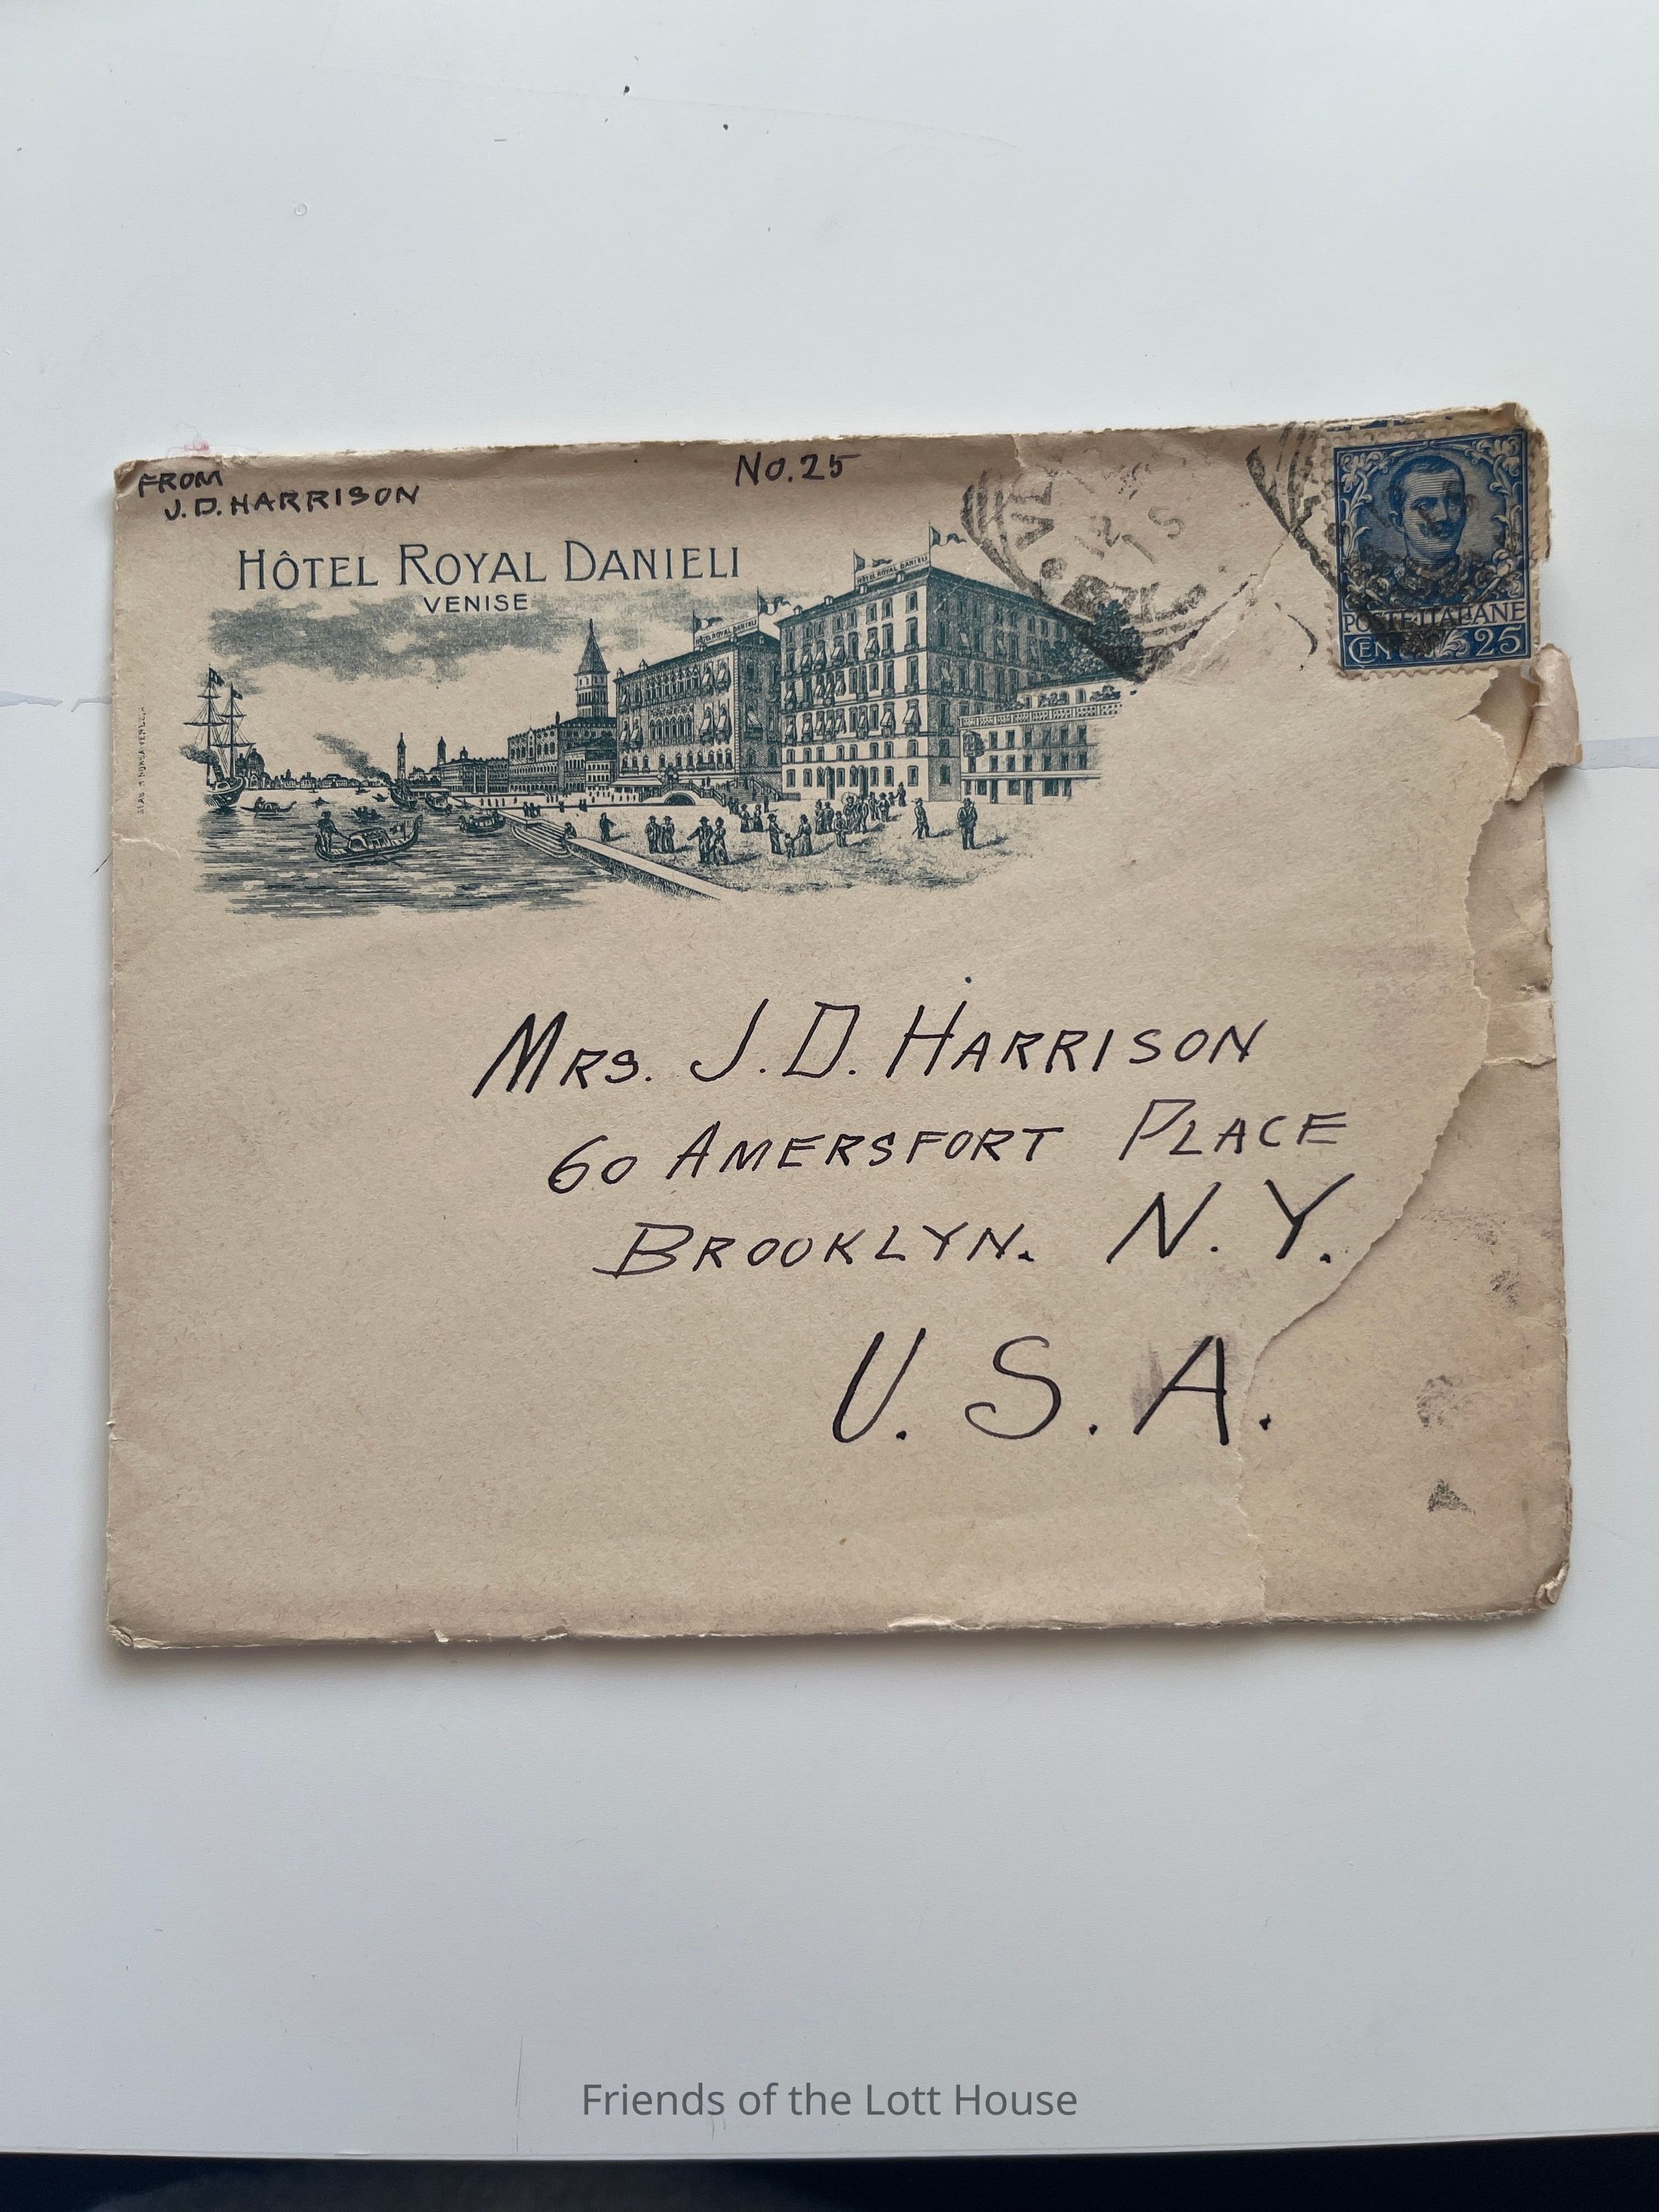 FROM
J.D. HARRISON
No. 25
HÔTEL ROYAL DANIELI
VENISE
HÔTEL ROYAL DANIELI
HÔTEL ROYAL DANIELI
POSTE ITALIANE
25
MRS. J. D. HARRISON
60 AMERSFORT PLACE
BROOKLYN. N. Y.
U. S. A.
Friends of the Lott House